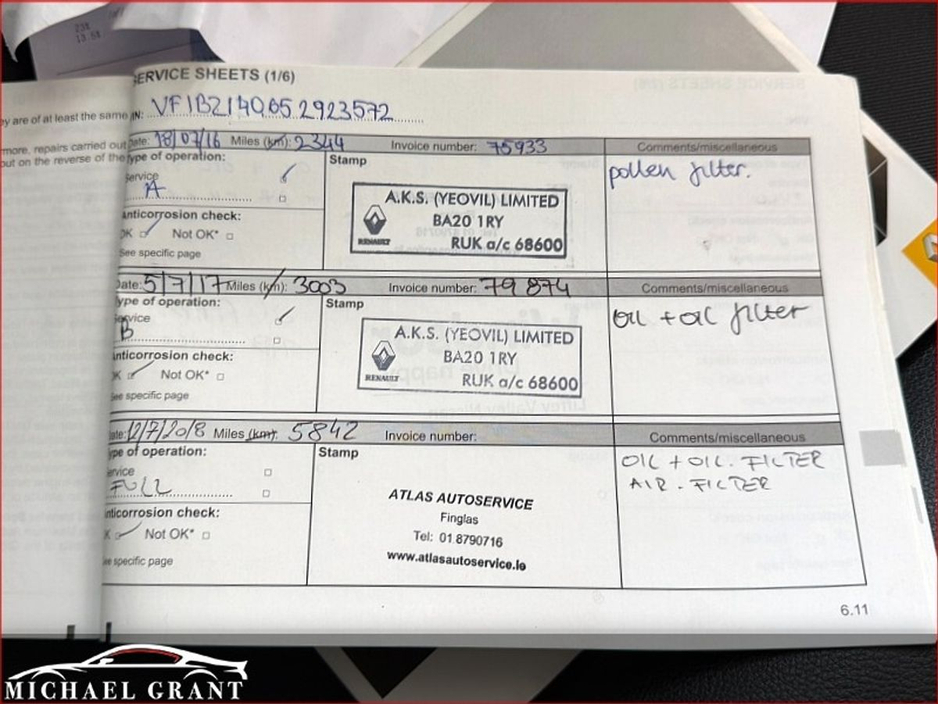 SERVICE SHEETS (1/6)
ey are of at least the same
IN: VF1BZ140652923572
more, repairs carried out
out on the reverse of the
Date: 18/07/16 Miles (km): 2344 Invoice number: 75933 Comments/miscellaneous
Type of operation:
Stamp
pollen filter.
Service
A
Anticorrosion check:
OK Not OK*
See specific page
A.K.S. (YEOVIL) LIMITED
BA20 1RY
RENAULT RUK a/c 68600
Date: 5/7/17 Miles (km): 3003 Invoice number: 79874 Comments/miscellaneous
Type of operation:
Stamp
Oil + Oil filter
Service
B
Anticorrosion check:
OK Not OK*
See specific page
A.K.S. (YEOVIL) LIMITED
BA20 1RY
RENAULT RUK a/c 68600
Date: 12/7/2018 Miles (km): 5842 Invoice number: Comments/miscellaneous
Type of operation:
Stamp
OIL + OIL. FILTER
AIR. FILTER
Service
FULL
Anticorrosion check:
OK Not OK*
See specific page
ATLAS AUTOSERVICE
Finglas
Tel: 01 8790716
www.atlasautoservice.ie
6.11
MICHAEL GRANT